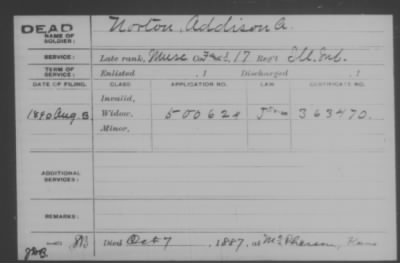 DEAD
NAME OF SOLDIER: Norton, Addison A.
SERVICE: Late rank, Musc Co. F & S, 17 Reg't Ill. Inf.
TERM OF SERVICE: Enlisted , 1 Discharged , 1
DATE OF FILING. CLASS. APPLICATION NO. LAW. CERTIFICATE NO.
Invalid,
1890 Aug. 8 Widow, 500624 363470.
Minor,
ADDITIONAL SERVICES:
REMARKS:
Died Oct 7, 1887, at McPherson, Kans